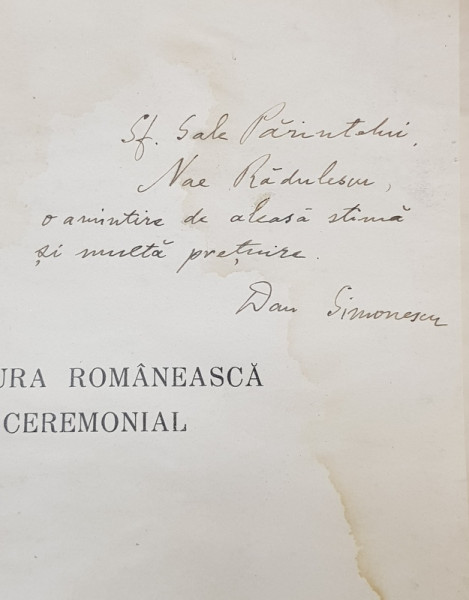 Sf. Sale Părintelui,
Nae Rădulescu,
o amintire de aleasă stimă
și multă prețuire.
Dan Simonescu
URA ROMÂNEASCĂ
CEREMONIAL